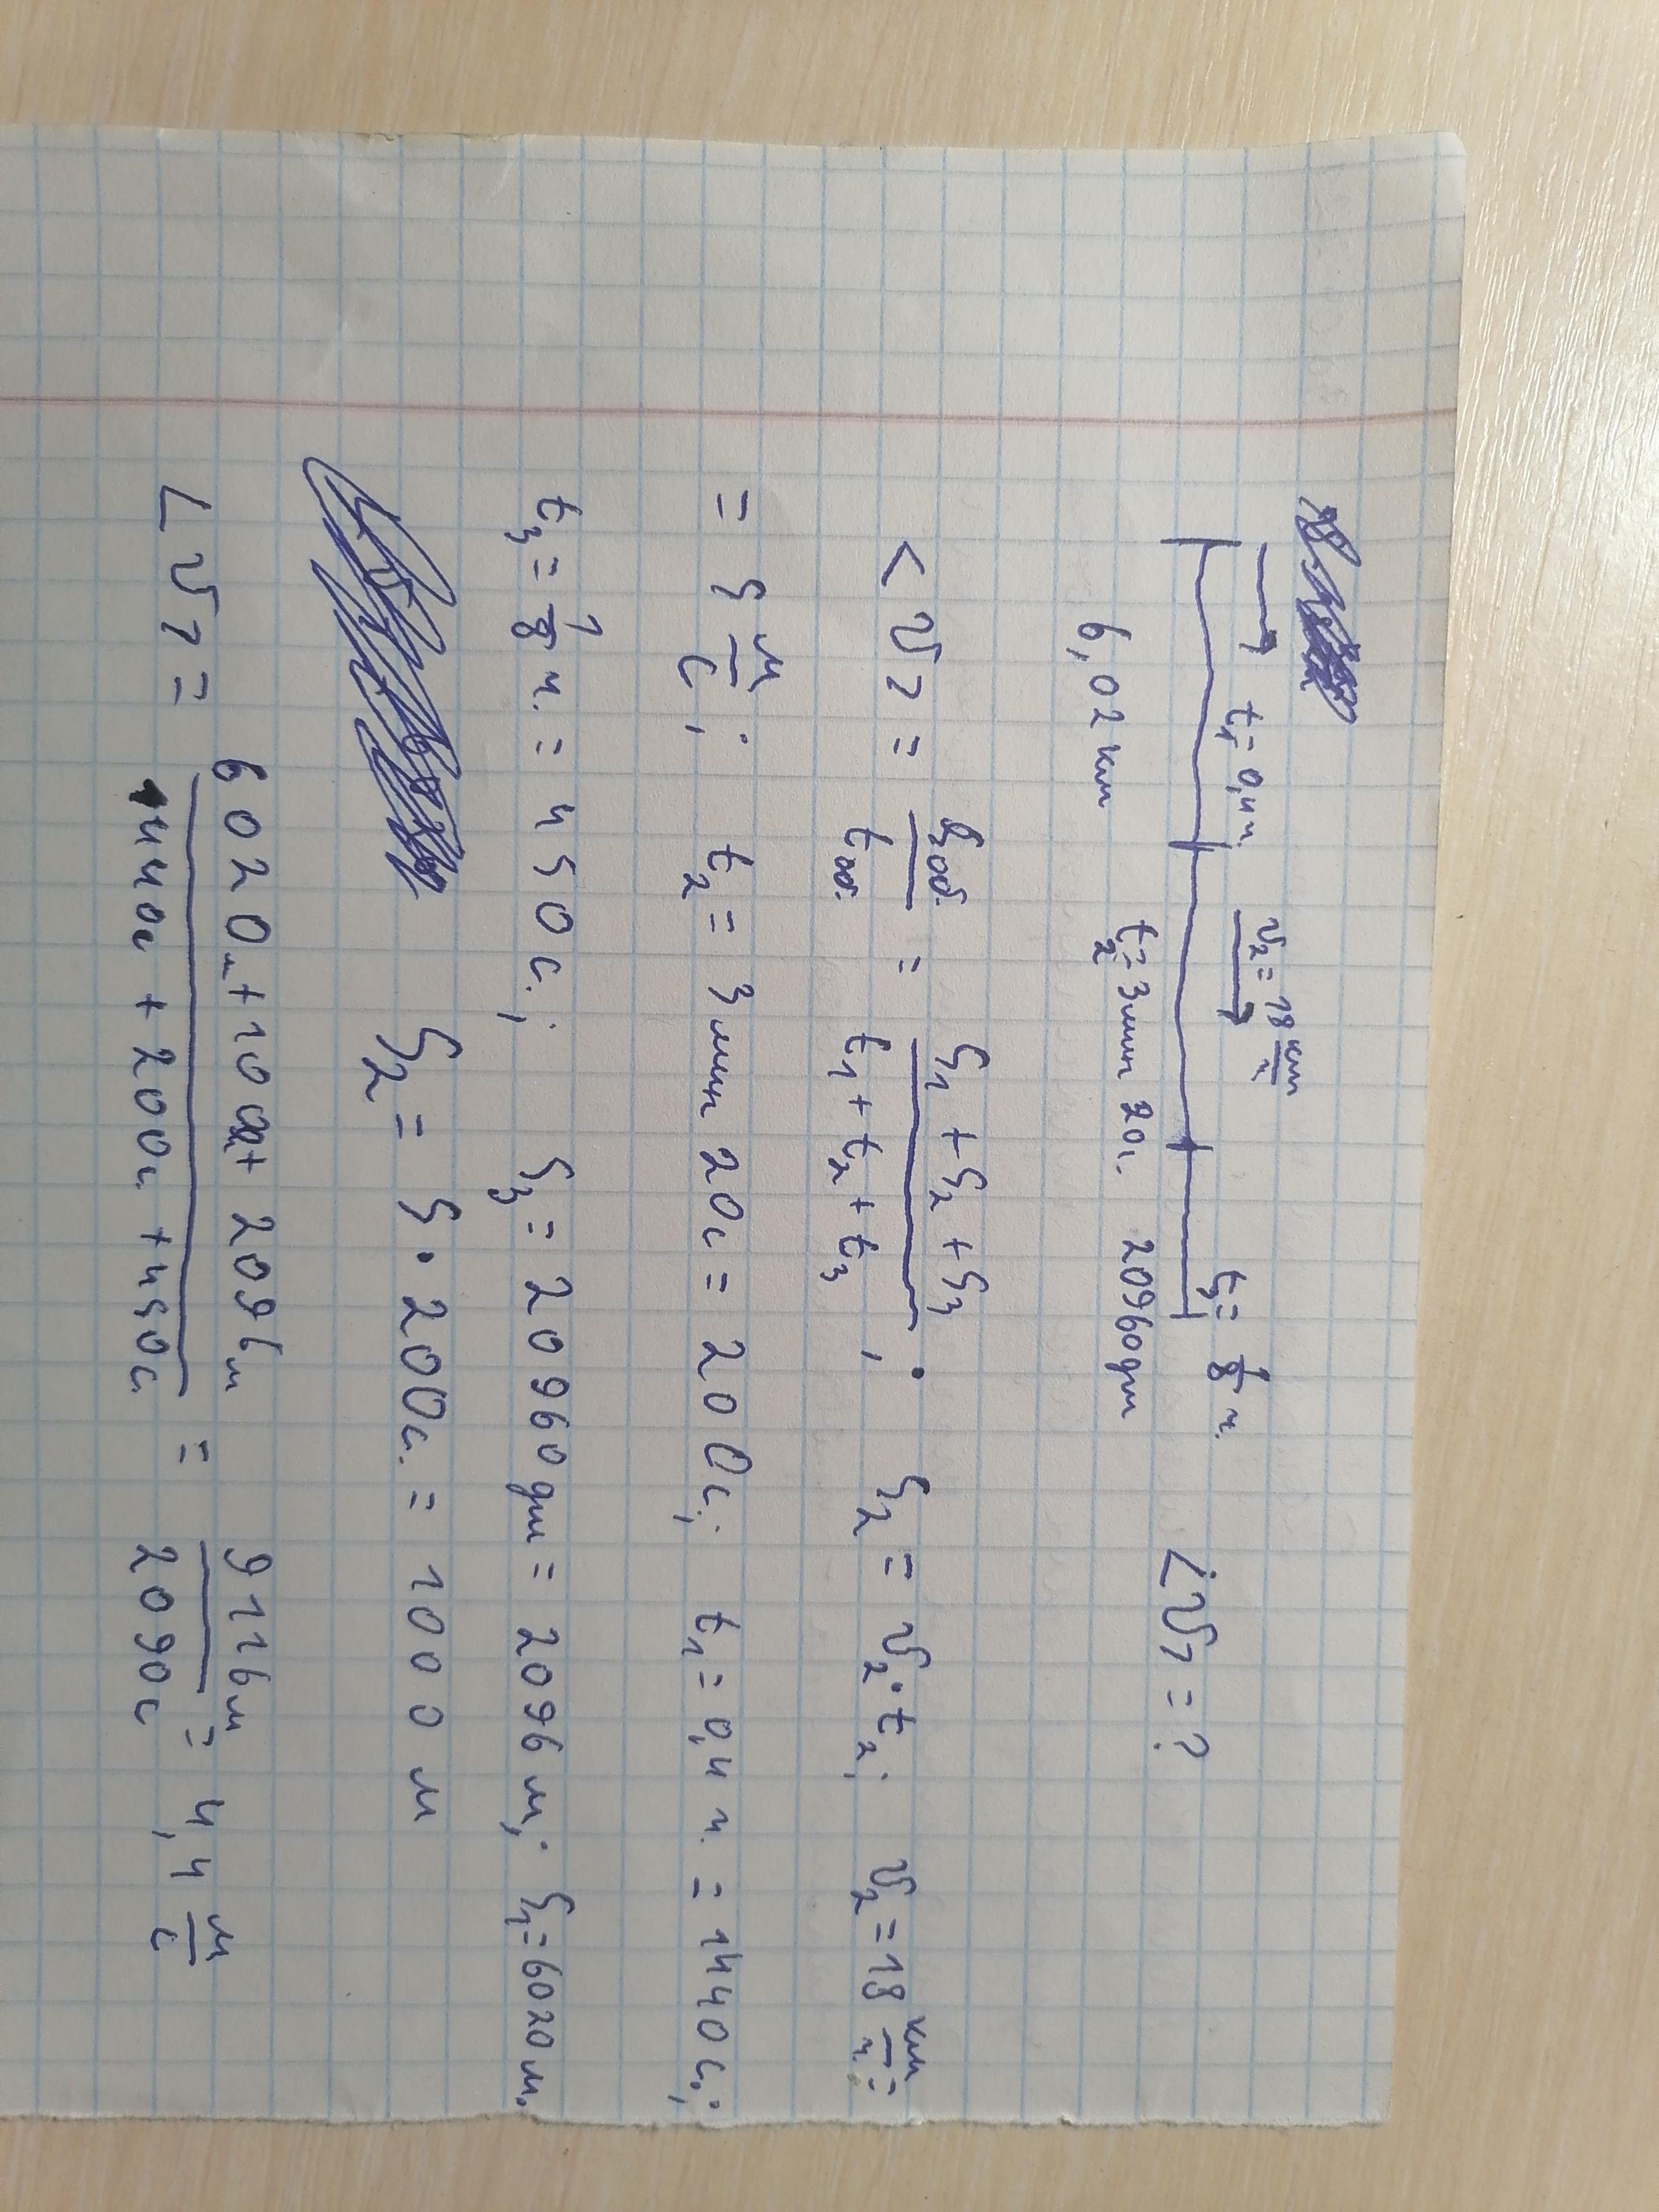 t₁=0,4ч v₂=18 км/ч t₃=1/8 ч.
6,02км t₂=3мин 20с. 20960дм <v>=?
<v> = Sоб./tоб. = (S₁+S₂+S₃)/(t₁+t₂+t₃); S₂=v₂·t₂; v₂=18 км/ч=
= 5 м/с; t₂=3мин 20с=200с; t₁=0,4 ч.=1440с.;
t₃=1/8 ч.=450с.; S₃=20960дм=2096м; S₁=6020м.
S₂=5·200с.=1000м
<v>= (6020м+1000м+2096м)/(1440с+200с.+450с) = 9116м/2090с = 4,4 м/с